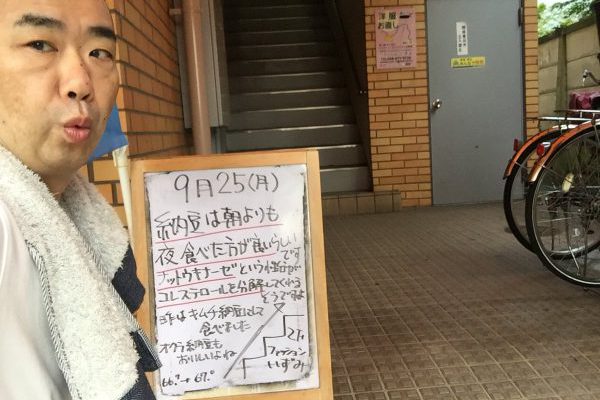 洋服
お直し
9月25(月)
納豆は朝よりも
夜食べた方が良いらしい
です
ナットウキナーゼという成分が
コレステロールを分解してくれる
そうですよ
キムチ納豆にして
食べました
オクラ納豆も
おいしいよね
ファッション
いずみ